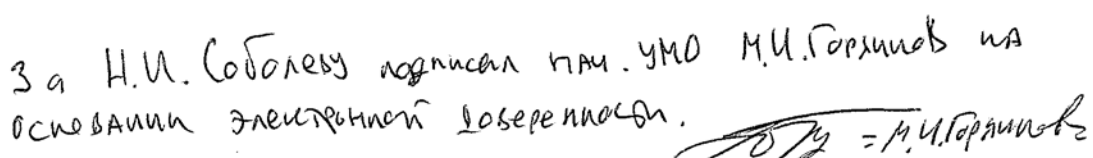 За Н.И. Соболеву подписал нач. УМО М.И. Горяинов на
основании электронной доверенности.
= М.И. Горяинов